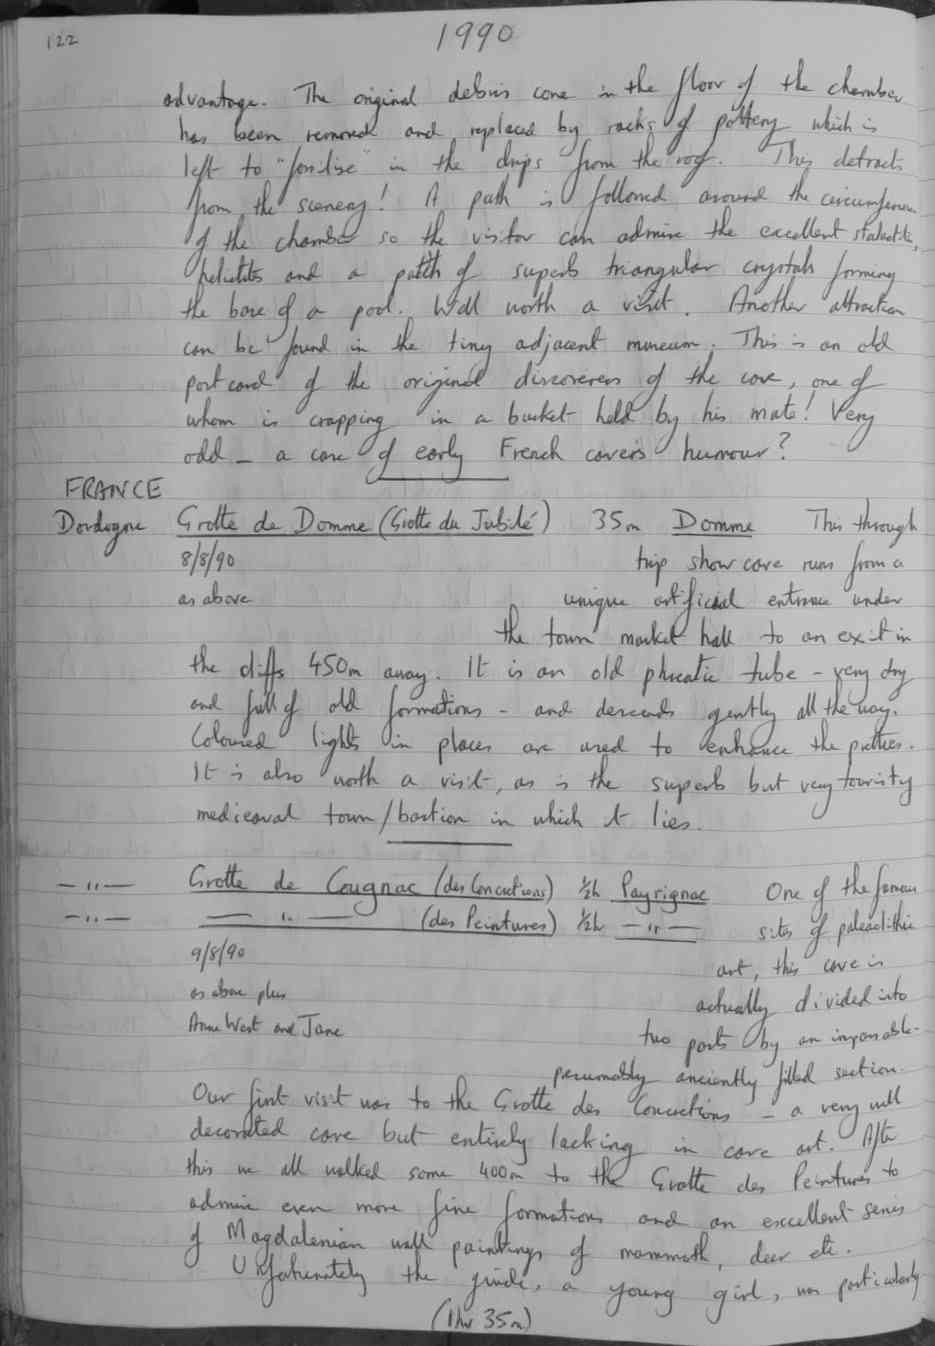 122
1990
advantage. The original debris cone in the floor of the chamber
has been removed and replaced by racks of pottery which is
left to "fossilise" in the drips from the roof. This detracts
from the scenery! A path is followed around the circumference
of the chamber so the visitor can admire the excellent stalactite,
helictites and a patch of superb triangular crystals forming
the base of a pool. Well worth a visit. Another attraction
can be found in the tiny adjacent museum. This is an old
postcard of the original discoverers of the cave, one of
whom is crapping in a bucket held by his mate! Very
odd - a case of early French cavers humour?
FRANCE
Dordogne Grotte de Domme (Grotte du Jubilé) 35m Domme This through
8/8/90 trip show cave runs from a
as above unique artificial entrance under
the town market hall to an exit in
the cliffs 450m away. It is an old phreatic tube - very dry
and full of old formations - and descends gently all the way.
Coloured lights in places are used to enhance the pretties.
It is also worth a visit, as is the superb but very touristy
medieaval town/bastion in which it lies.
— " — Grotte de Cougnac (des Concretions) ½h Payrignac One of the famous
— " — — " — (des Peintures) ½h — " — sites of paleolithic
9/8/90 art, this cave is
as above plus actually divided into
Anne West and Jane two parts by an impassable -
presumably anciently filled section.
Our first visit was to the Grotte des Concretions - a very well
decorated cave but entirely lacking in cave art. After
this we all walked some 400m to the Grotte des Peintures to
admire even more fine formations and an excellent series
of Magdalenian wall paintings of mammoth, deer etc.
Unfortunately the guide, a young girl, was particularly
(1hr 35m)